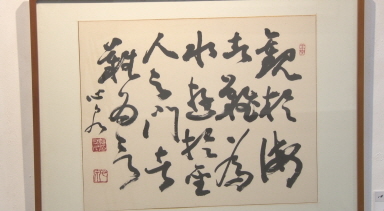 觀於海
者難為
水遊於聖
人之門者
難為言